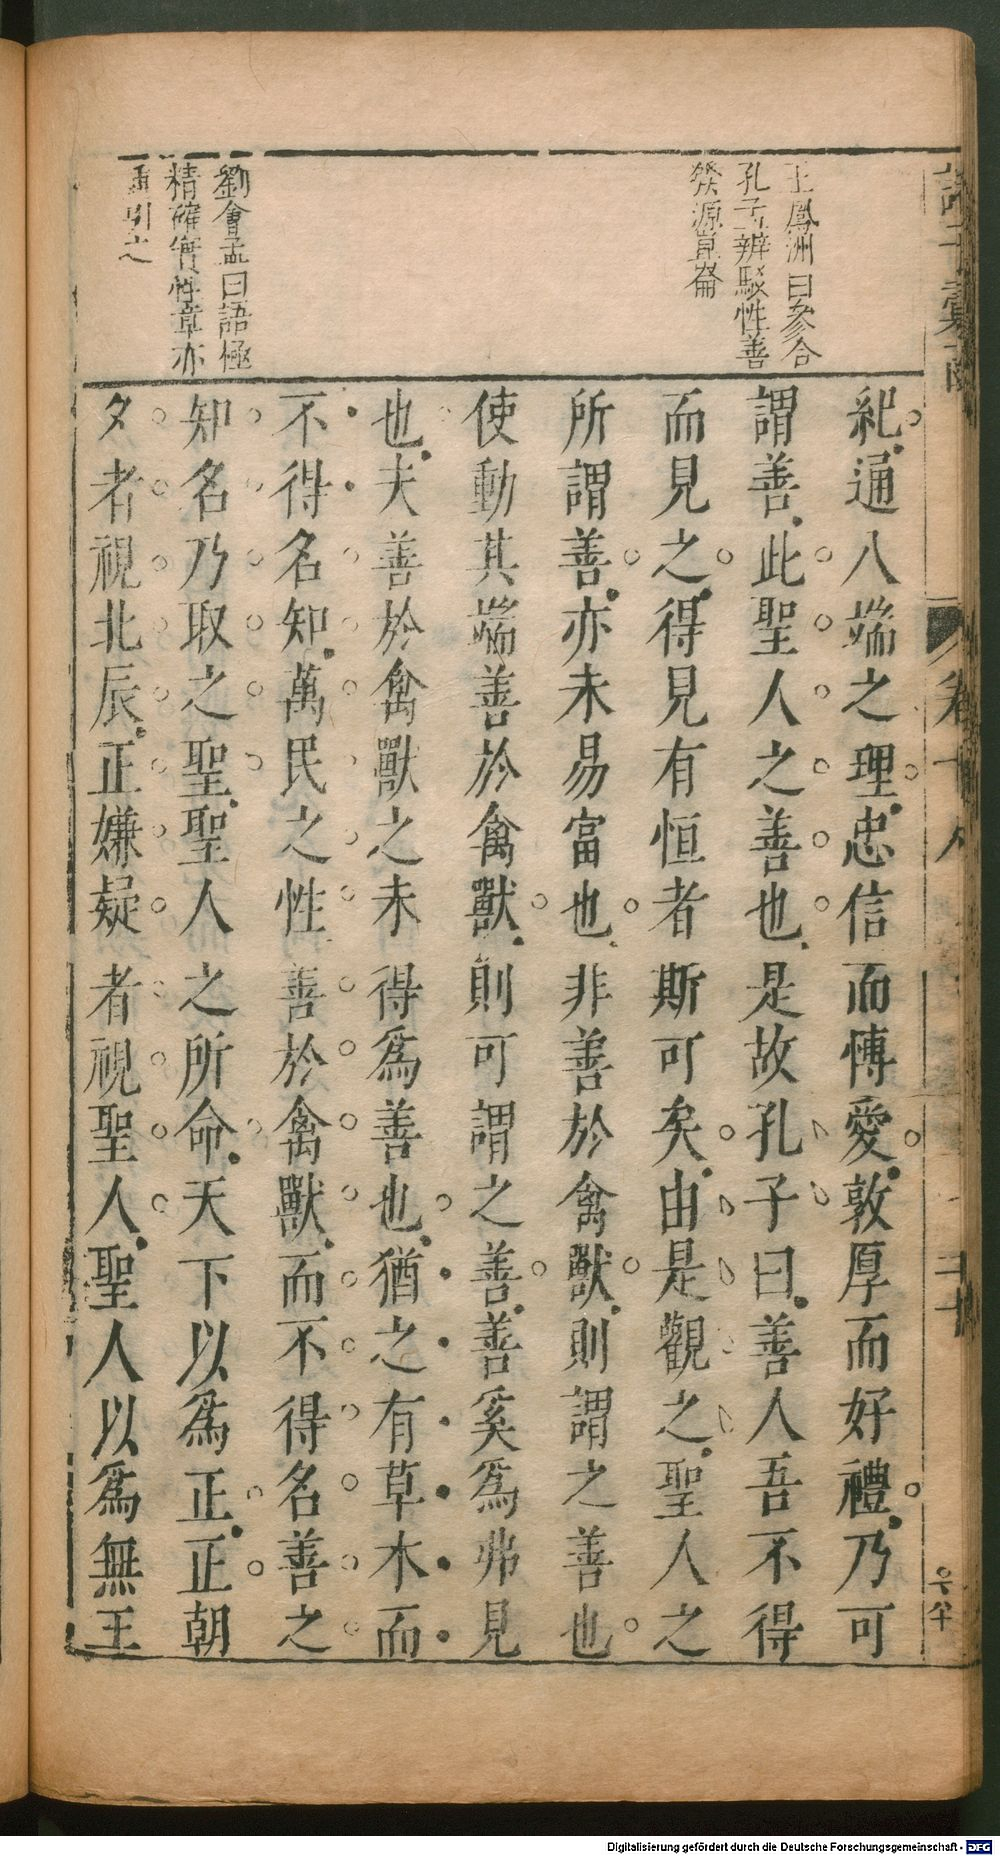 王鳳洲曰參合
孔孟辨駁性善
發源崑崙
劉會孟曰語極
精確實性章亦
再引之
紀通八端之理忠信而愽愛敦厚而好禮乃可
謂善此聖人之善也是故孔子曰善人吾不得
而見之得見有恒者斯可矣由是觀之聖人之
所謂善亦未易富也非善於禽獸則謂之善也
使動其端善於禽獸則可謂之善善奚爲弗見
也夫善於禽獸之未得爲善也猶之有草木而
不得名知萬民之性善於禽獸而不得名善之
知名乃取之聖聖人之所命天下以爲正正朝
夕者視北辰正嫌疑者視聖人聖人以爲無王
卷十八
二十
Digitalisierung gefördert durch die Deutsche Forschungsgemeinschaft - DFG